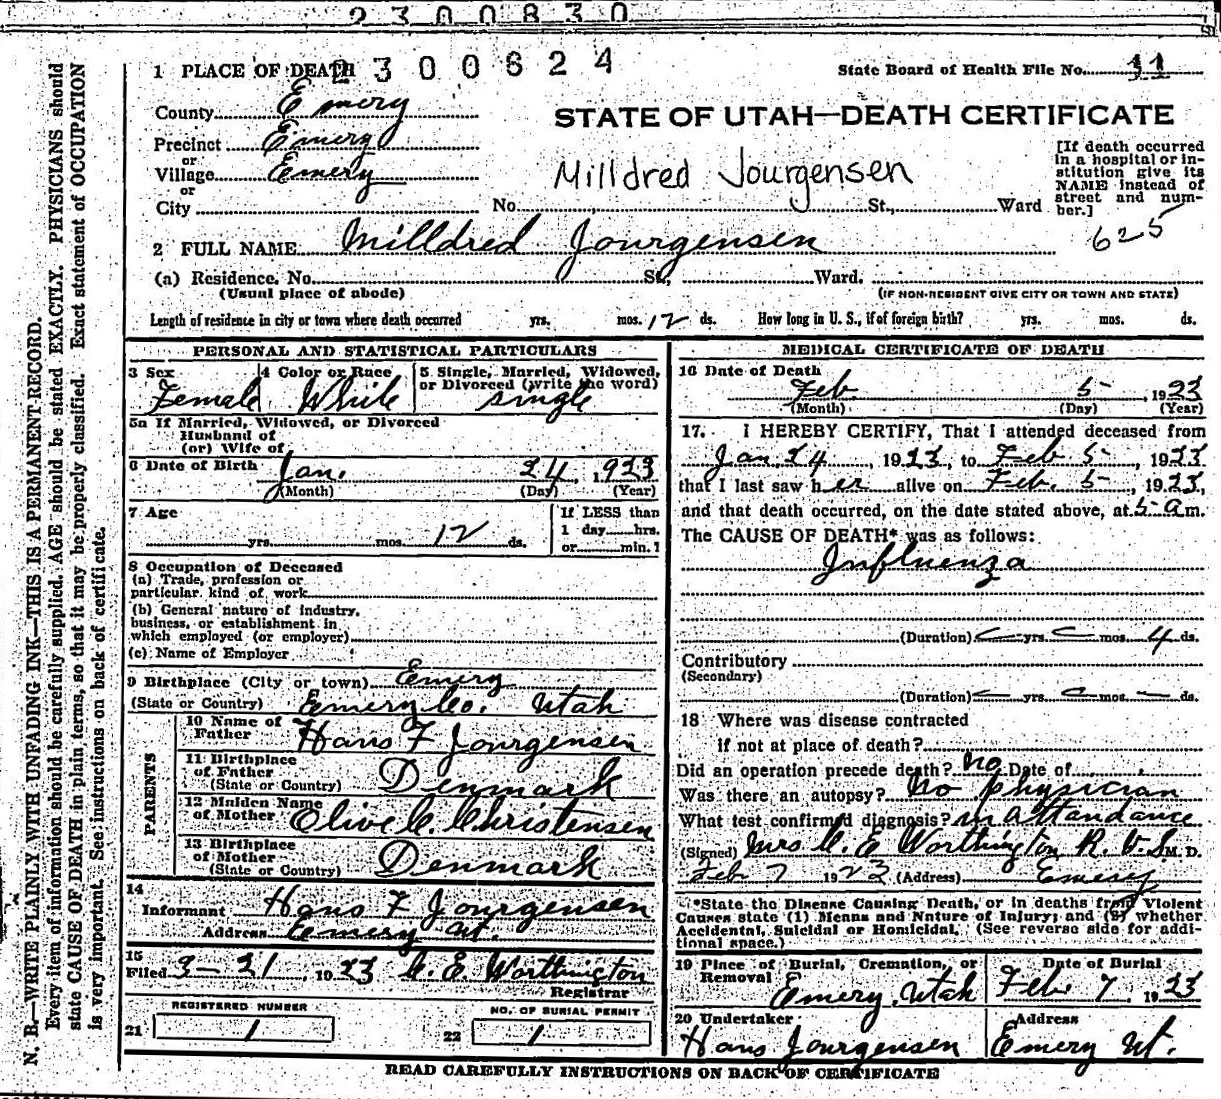 2300830
2300624
1 PLACE OF DEATH
State Board of Health File No. 11
County Emery
STATE OF UTAH—DEATH CERTIFICATE
Precinct Emery
or
Village Emery
or
City
Milldred Jourgensen
No. St., Ward
[If death occurred
in a hospital or in-
stitution give its
NAME instead of
street and num-
ber.]
625
2 FULL NAME Milldred Jourgensen
(a) Residence. No. St., Ward.
(Usual place of abode)
(IF NON-RESIDENT GIVE CITY OR TOWN AND STATE)
Length of residence in city or town where death occurred yrs. mos. 12 ds. How long in U. S., if of foreign birth? yrs. mos. ds.
PERSONAL AND STATISTICAL PARTICULARS
3 Sex
Female
4 Color or Race
White
5 Single, Married, Widowed,
or Divorced (write the word)
single
5a If Married, Widowed, or Divorced
Husband of
(or) Wife of
6 Date of Birth Jan. 24, 1923
(Month) (Day) (Year)
7 Age
yrs. mos. 12 ds.
If LESS than
1 day hrs.
or min. ?
8 Occupation of Deceased
(a) Trade, profession or
particular kind of work
(b) General nature of industry,
business, or establishment in
which employed (or employer)
(c) Name of Employer
9 Birthplace (City or town) Emery
(State or Country) Emery Co. Utah
PARENTS
10 Name of
Father Hans F Jourgensen
11 Birthplace
of Father
(State or Country) Denmark
12 Maiden Name
of Mother Olive C. Christensen
13 Birthplace
of Mother
(State or Country) Denmark
14
Informant Hans F Jourgensen
Address Emery Ut.
15
Filed 3-21, 1923 C. E. Worthington
Registrar
REGISTERED NUMBER
21 1
NO. OF BURIAL PERMIT
22 1
MEDICAL CERTIFICATE OF DEATH
16 Date of Death
Feb 5, 1923
(Month) (Day) (Year)
17. I HEREBY CERTIFY, That I attended deceased from
Jan. 24, 1923, to Feb 5, 1923
that I last saw her alive on Feb. 5, 1923,
and that death occurred, on the date stated above, at 5 a m.
The CAUSE OF DEATH* was as follows:
Influenza
(Duration) yrs. mos. 4 ds.
Contributory
(Secondary)
(Duration) yrs. mos. ds.
18 Where was disease contracted
if not at place of death?
Did an operation precede death? No Date of
Was there an autopsy? No Physician
What test confirmed diagnosis? in attendance
(Signed) Mrs C. E. Worthington R. V. S. M. D.
Feb 7 1923 (Address) Emery
*State the Disease Causing Death, or in deaths from Violent
Causes state (1) Means and Nature of Injury; and (2) whether
Accidental, Suicidal or Homicidal. (See reverse side for addi-
tional space.)
19 Place of Burial, Cremation, or
Removal Emery, Utah
Date of Burial
Feb 7, 1923
20 Undertaker
Hans Jourgensen
Address
Emery Ut.
READ CAREFULLY INSTRUCTIONS ON BACK OF CERTIFICATE
N. B.—WRITE PLAINLY WITH UNFADING INK—THIS IS A PERMANENT RECORD.
Every item of information should be carefully supplied. AGE should be stated EXACTLY. PHYSICIANS should
state CAUSE OF DEATH in plain terms, so that it may be properly classified. Exact statement of OCCUPATION
is very important. See instructions on back of certificate.